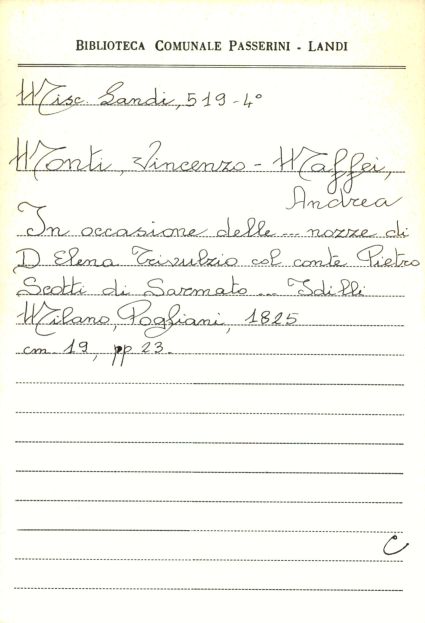 BIBLIOTECA COMUNALE PASSERINI - LANDI
Misc. Landi, 519-4°
Monti, Vincenzo - Maffei,
Andrea
In occasione delle ... nozze di
D. Elena Trivulzio col conte Pietro
Scotti di Sarmato ... Idilli
Milano, Pogliani, 1825
cm. 19, pp 23.
C